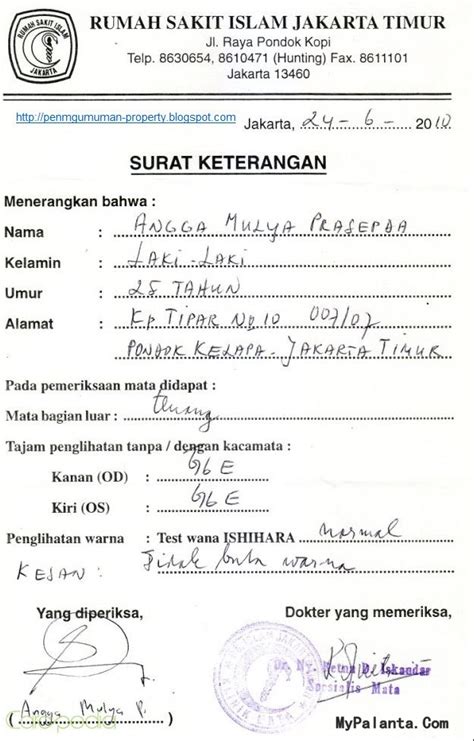 RUMAH SAKIT ISLAM JAKARTA
RUMAH SAKIT ISLAM JAKARTA TIMUR
Jl. Raya Pondok Kopi
Telp. 8630654, 8610471 (Hunting) Fax. 8611101
Jakarta 13460
http://penmgumuman-property.blogspot.com
Jakarta, 24 - 6 - 2010
SURAT KETERANGAN
Menerangkan bahwa :
Nama : ANGGA MULYA PRASEPDA
Kelamin : LAKI - LAKI
Umur : 25 TAHUN
Alamat : KP TIPAR NO 10 007/07
PONDOK KELAPA - JAKARTA TIMUR
Pada pemeriksaan mata didapat :
Mata bagian luar : tenang
Tajam penglihatan tanpa / dengan kacamata :
Kanan (OD) : 6/6 E
Kiri (OS) : 6/6 E
Penglihatan warna : Test wana ISHIHARA normal
KESAN : Tidak buta warna
Yang diperiksa, Dokter yang memeriksa,
Dr. Ny. Retna D. Iskandar
Spesialis Mata
( Angga Mulya P. )
MyPalanta. Com